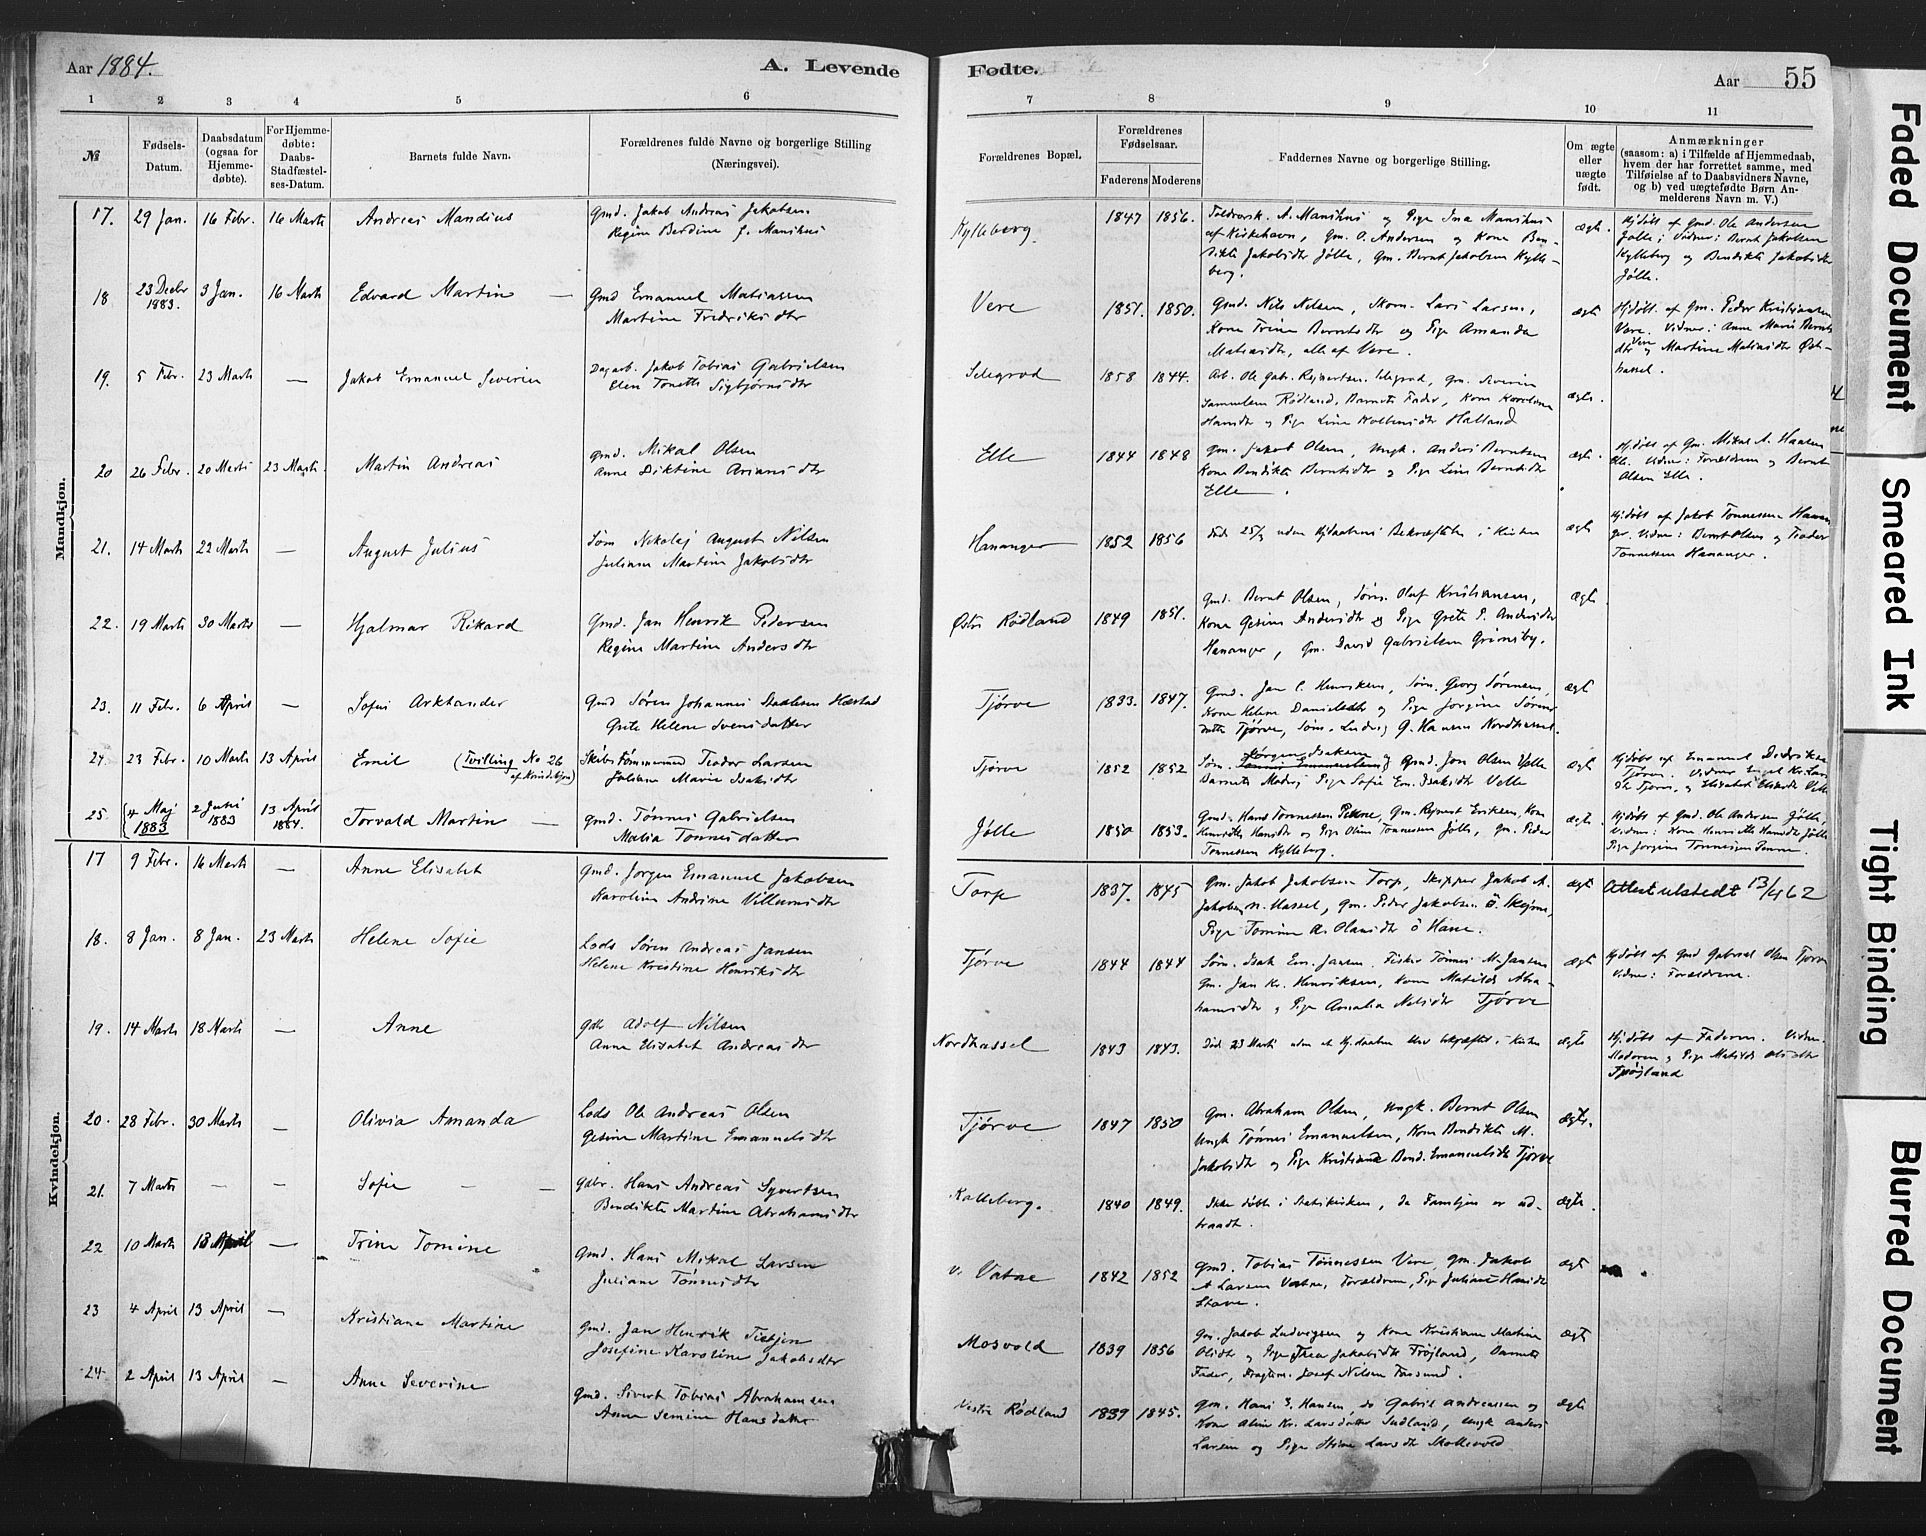 Aar 1884.
A. Levende
1 2 3 4 5 6
№
Fødsels-
Datum.
Daabsdatum
(ogsaa for
Hjemme-
døbte).
For Hjemme-
døbte:
Daabs-
Stadfæstel-
ses-Datum.
Barnets fulde Navn.
Forældrenes fulde Navne og borgerlige Stilling
(Næringsvei).
Mandkjøn.
17. 29 Jan. 16 Febr. 16 Marts Andreas Mandius Gmd. Jakob Andreas Jakobsen
Regine Berdine f. Manshus
18 23 Decbr 1883. 3 Jan. 16 Marts Edvard Martin — Gmd Emanuel Matiassen
Martine Fredriksdtr
19. 5 Febr. 23 Marts — Jakob Emanuel Severin Dagarb. Jakob Tobias Gabrielsen
Elen Tonette Sigbjørnsdtr
20 26 Febr. 20 Marts 23 Marts. Martin Andreas gmd. Mikal Olsen
Anne Diktine Ariansdtr
21. 14 Marts 22 Marts — August Julius Søm Nikolaj August Nilsen
Juliane Martine Jakobsdtr
22. 19 Marts 30 Marts — Hjalmar Rikard Gmd. Jan Henrik Pedersen
Regine Martine Andersdtr
23. 11 Febr. 6 April — Sofus Arktander Gmd Søren Johannes Danielsen Hæstad
Grete Helene Svensdatter
24. 23 Febr. 10 Marts 13 April Emil (Tvilling No 26
af Kvindekjøn) Skibstømmermd Teodor Larsen
Joliane Marie Isaksdtr
25. 4 Maj 1883 2 Juni 1883 13 April 1884. Torvald Martin — gmd. Tønnes Gabrielsen
Malia Tønnesdatter
Kvindekjøn.
17 9 Febr. 16 Marts — Anne Elisabet Gmd. Jørgen Emanuel Jakobsen
Karoline Andrine Villumsdtr
18. 8 Jan. 8 Jan. 23 Marts Helene Sofie Lods Søren Andreas Jansen
Helene Kristine Henriksdtr
19. 14 Marts 18 Marts — Anne Gdbr Adolf Nilsen
Anne Elisabet Andreasdtr
20. 28 Febr. 30 Marts — Olivia Amanda Lods Ole Andreas Olsen
Gesine Martine Emanuelsdtr
21. 7 Marts — — Sofie — — Gdbr. Hans Andreas Syvertsen
Bendikte Martine Abrahamsdtr
22 10 Marts 13 April — Trine Tomine Gmd. Hans Mikal Larsen
Juliane Tønnesdtr
23 4 April 13 April — Kristiane Martine Gmd. Jan Henrik Tietjen
Josefine Karoline Jakobsdtr
24 2 April 13 April — Anne Severine Gmd. Sivert Tobias Abrahamsen
Anne Semine Hansdatter
Fødte.
Aar 55
7 8 9 10 11
Forældrenes Bopæl.
Forældrenes
Fødselsaar.
Faderens Moderens
Faddernes Navne og borgerlige Stilling.
Om ægte
eller
uægte
født.
Anmærkninger
(saasom: a) i Tilfælde af Hjemmedaab,
hvem der har forrettet samme, med
Tilføielse af to Daabsvidners Navne,
og b) ved uægtefødte Børn An-
melderens Navn m. V.)
Kylleberg. 1847 1856. Toldvæsk. A. Manshus og Pige Ina Manshus
af Kirkehavn, Gm. O. Andersen og Kone Ben-
dikte Jakobsdtr Jølle, Gm. Bernt Jakobsen Kylle-
berg. ægte. Hjdøbt af Gmd. Ole Andersen
Jølle; Vidner: Bernt Jakobsen
Kylleberg og Bendikte Jakobsdtr
Jølle.
Vere 1851. 1850. Gmd. Nils Nilsen, Skom. Lars Larsen,
Kone Trine Berntsdtr og Pige Amanda
Matiasdtr, alle af Vere. ægte Hjdøbt af Gm. Peder Kristiansen
Vere. Vidner: Anne Marie Bernts
dtr Vere og Martine Matiasdtr Øst-
hassel.
Selegrod 1858 1844. Arb. Ole Gab. Rejnertsen Selegrod, Gm. Severin
Samuelsen Rødland, Barnets Fader, Kone Karoline
Hansdtr og Pige Line Halland ægte.
Elle 1844 1848 Gm. Jakob Olsen, Ungk. Anders Berntsen
Kone Bendikte Berntsdtr og Pige Line Berntsdtr
Elle —. ægte. Hjdøbt af Gm. Mikal A. Hansen
Elle. Vidner: Forældrene og Bernt
Olsen Elle.
Hananger 1852 1856 Død 25/3 uden Hjdaabens Bekræftelse i Kirken ægte Hjdøbt af Jakob Tønnessen Hanan
ger. Vidner: Bernt Olsen og Teodor
Tønnessen Hananger.
Østre Rødland 1849 1851. Gmd. Bernt Olsen, Søm. Oluf Kristiansen,
Kone Gesine Andersdtr og Pige Grete P. Andersdtr
Hananger, Gm. David Gabrielsen Grimsby. ægte.
Tjørve 1833. 1847. Gmd. Jan C. Henriksen, Søm. Georg Sørensen,
Kone Helene Danielsdtr og Pige Jorgine Sørens
datter Tjørve, Søm. Ludvig G. Hansen Nordhassel. ægte
Tjørve 1852 1852 Søm. Jørgen Isaksen og Gmd. Jon Olsen Velle
Barnets Moder, Pige Sofie Em. Isaksdtr Velle ægte Hjdøbt af Emanuel Didriksen
Tjørve. Vidner Engel Kr. Lars
dtr Tjørve, og Elisabet Velle
Jølle 1850 1853. Gmd. Hans Tønnessen Penne, Gm. Rejnert Eriksen, Kone
Henriette Hansdtr og Pige Oline Tønnessen Jølle, Gm. Peder
Tønnessen Kylleberg. ægte. Hjdøbt af Gmd. Ole Andersen Jølle,
Vidner: Kone Henriette Hansdtr Jølle
Pige Jorgine Tønnesen Penne.
Torp 1837. 1845 Gm. Jakob Jakobsen Torp, Skipper Jakob A.
Jakobsen N. Hassel, Gm. Peder Jakobsen Ö. Skejme,
Pige Tomine A. Olausdtr ö Have. ægte Attest utstedt 13/4 62
Tjørve 1844 1844 Søm. Isak Em. Jansen, Fisker Tønnes M. Jansen
Gm. Jan Kr. Henriksen, Kone Matilde Abra-
hamsdtr, Pige Amalia Nilsdtr Tjørve ægte Hjdøbt af Gmd Gabriel Olsen Tjørve
Vidner: Forældrene.
Nordhassel 1843 1843. Død 23 Marts uden at Hj.daaben blev bekræftet i Kirken ægte Hjdøbt af Faderen. Vidner
Moderen og Pige Matilde Olsdtr
Trøjland
Tjørve 1847 1850 Gm. Abraham Olsen, Ungk. Bernt Olsen
Ungk Tønnes Emanuelsen, Kone Bendikte M.
Jakobsdtr og Pige Kristiane Bend. Emanuelsdtr Tjørve ægte.
Kalleberg. 1840 1849. Ikke døbt i Statskirken, da Familjen er ud-
traadt. ægte.
v. Vatne 1842 1852 Gmd. Tobias Tønnessen Vere, Gm. Jakob
A Larsen Vatne, Forældrene, Pige Juliane Hansdtr
Stave. ægte
Mosvold 1839 1856 Gm. Jakob Ludvigsen og Kone Kristiane Martine
Olsdtr og Pige Thea Jakobsdtr Trøjland, Barnets
Fader, Josef Nilsen Farsund. ægte
Vestre Rødland 1839 1845. Gm. Hans S. Hansen, do Gabriel Andreassen og
Kone Aline Kr. Larsdatter Sudland, Ungk Anders
Larsen og Pige Stine Larsdtr Mollevold ægte
Faded Document
Smeared Ink
Tight Binding
Blurred Document